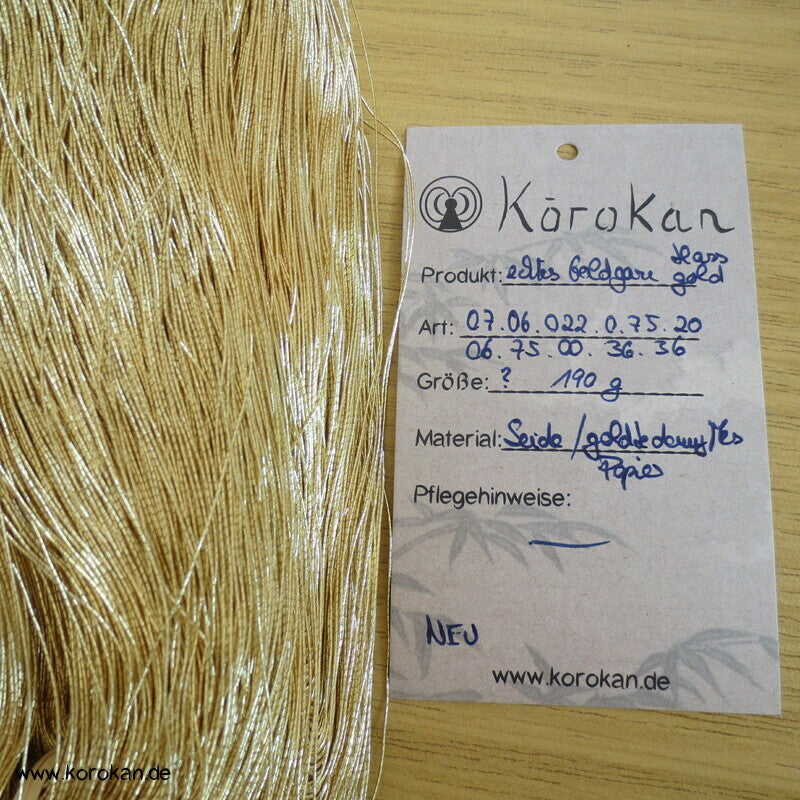 Kōrokan
Produkt: echtes Goldgarn
gold
Art: 07.06.022.0.75.20
06.75.00.36.36
Größe: ? 190 g
Material: Seide /
Papier
Pflegehinweise:
NEU
www.korokan.de
www.korokan.de